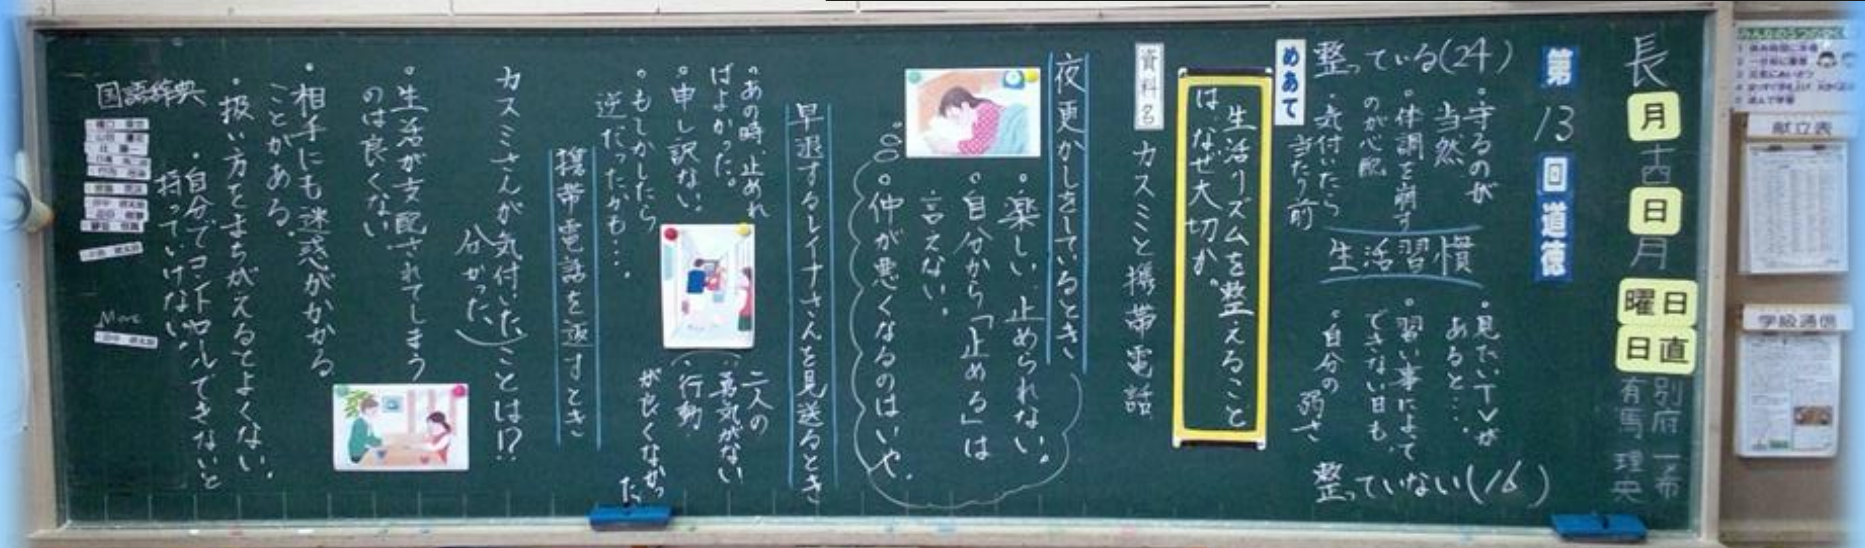 長
月
十四
日
月
曜日
日直
別府 一希
有馬 理央
第13回道徳
整っている(24)
・守るのが
当然
・体調を崩す
のが心配
・気付いたら
当たり前
生活習慣
・見たいTVが
あると…
・習い事によって
できない日も
・自分の弱さ
整っていない(16)
めあて
生活リズムを整えること
は、なぜ大切か。
資料名
カスミと携帯電話
夜更かしをしているとき
・楽しい、止められない。
・自分から「止める」は
言えない。
・仲が悪くなるのはいや。
早退するレイナさんを見送るとき
・あの時、止めれ
ばよかった。
・申し訳ない。
・もしかしたら
逆だったかも…。
二人の
勇気がない
行動
が良くなかっ
た。
携帯電話を返すとき
カスミさんが気付いた(
分かった)ことは!?
・生活が支配されてしまう
のは良くない
・相手にも迷惑がかかる
ことがある。
・扱い方をまちがえるとよくない。
・自分でコントロールできないと
持っていけない。
国語辞典
More
献立表
学級通信